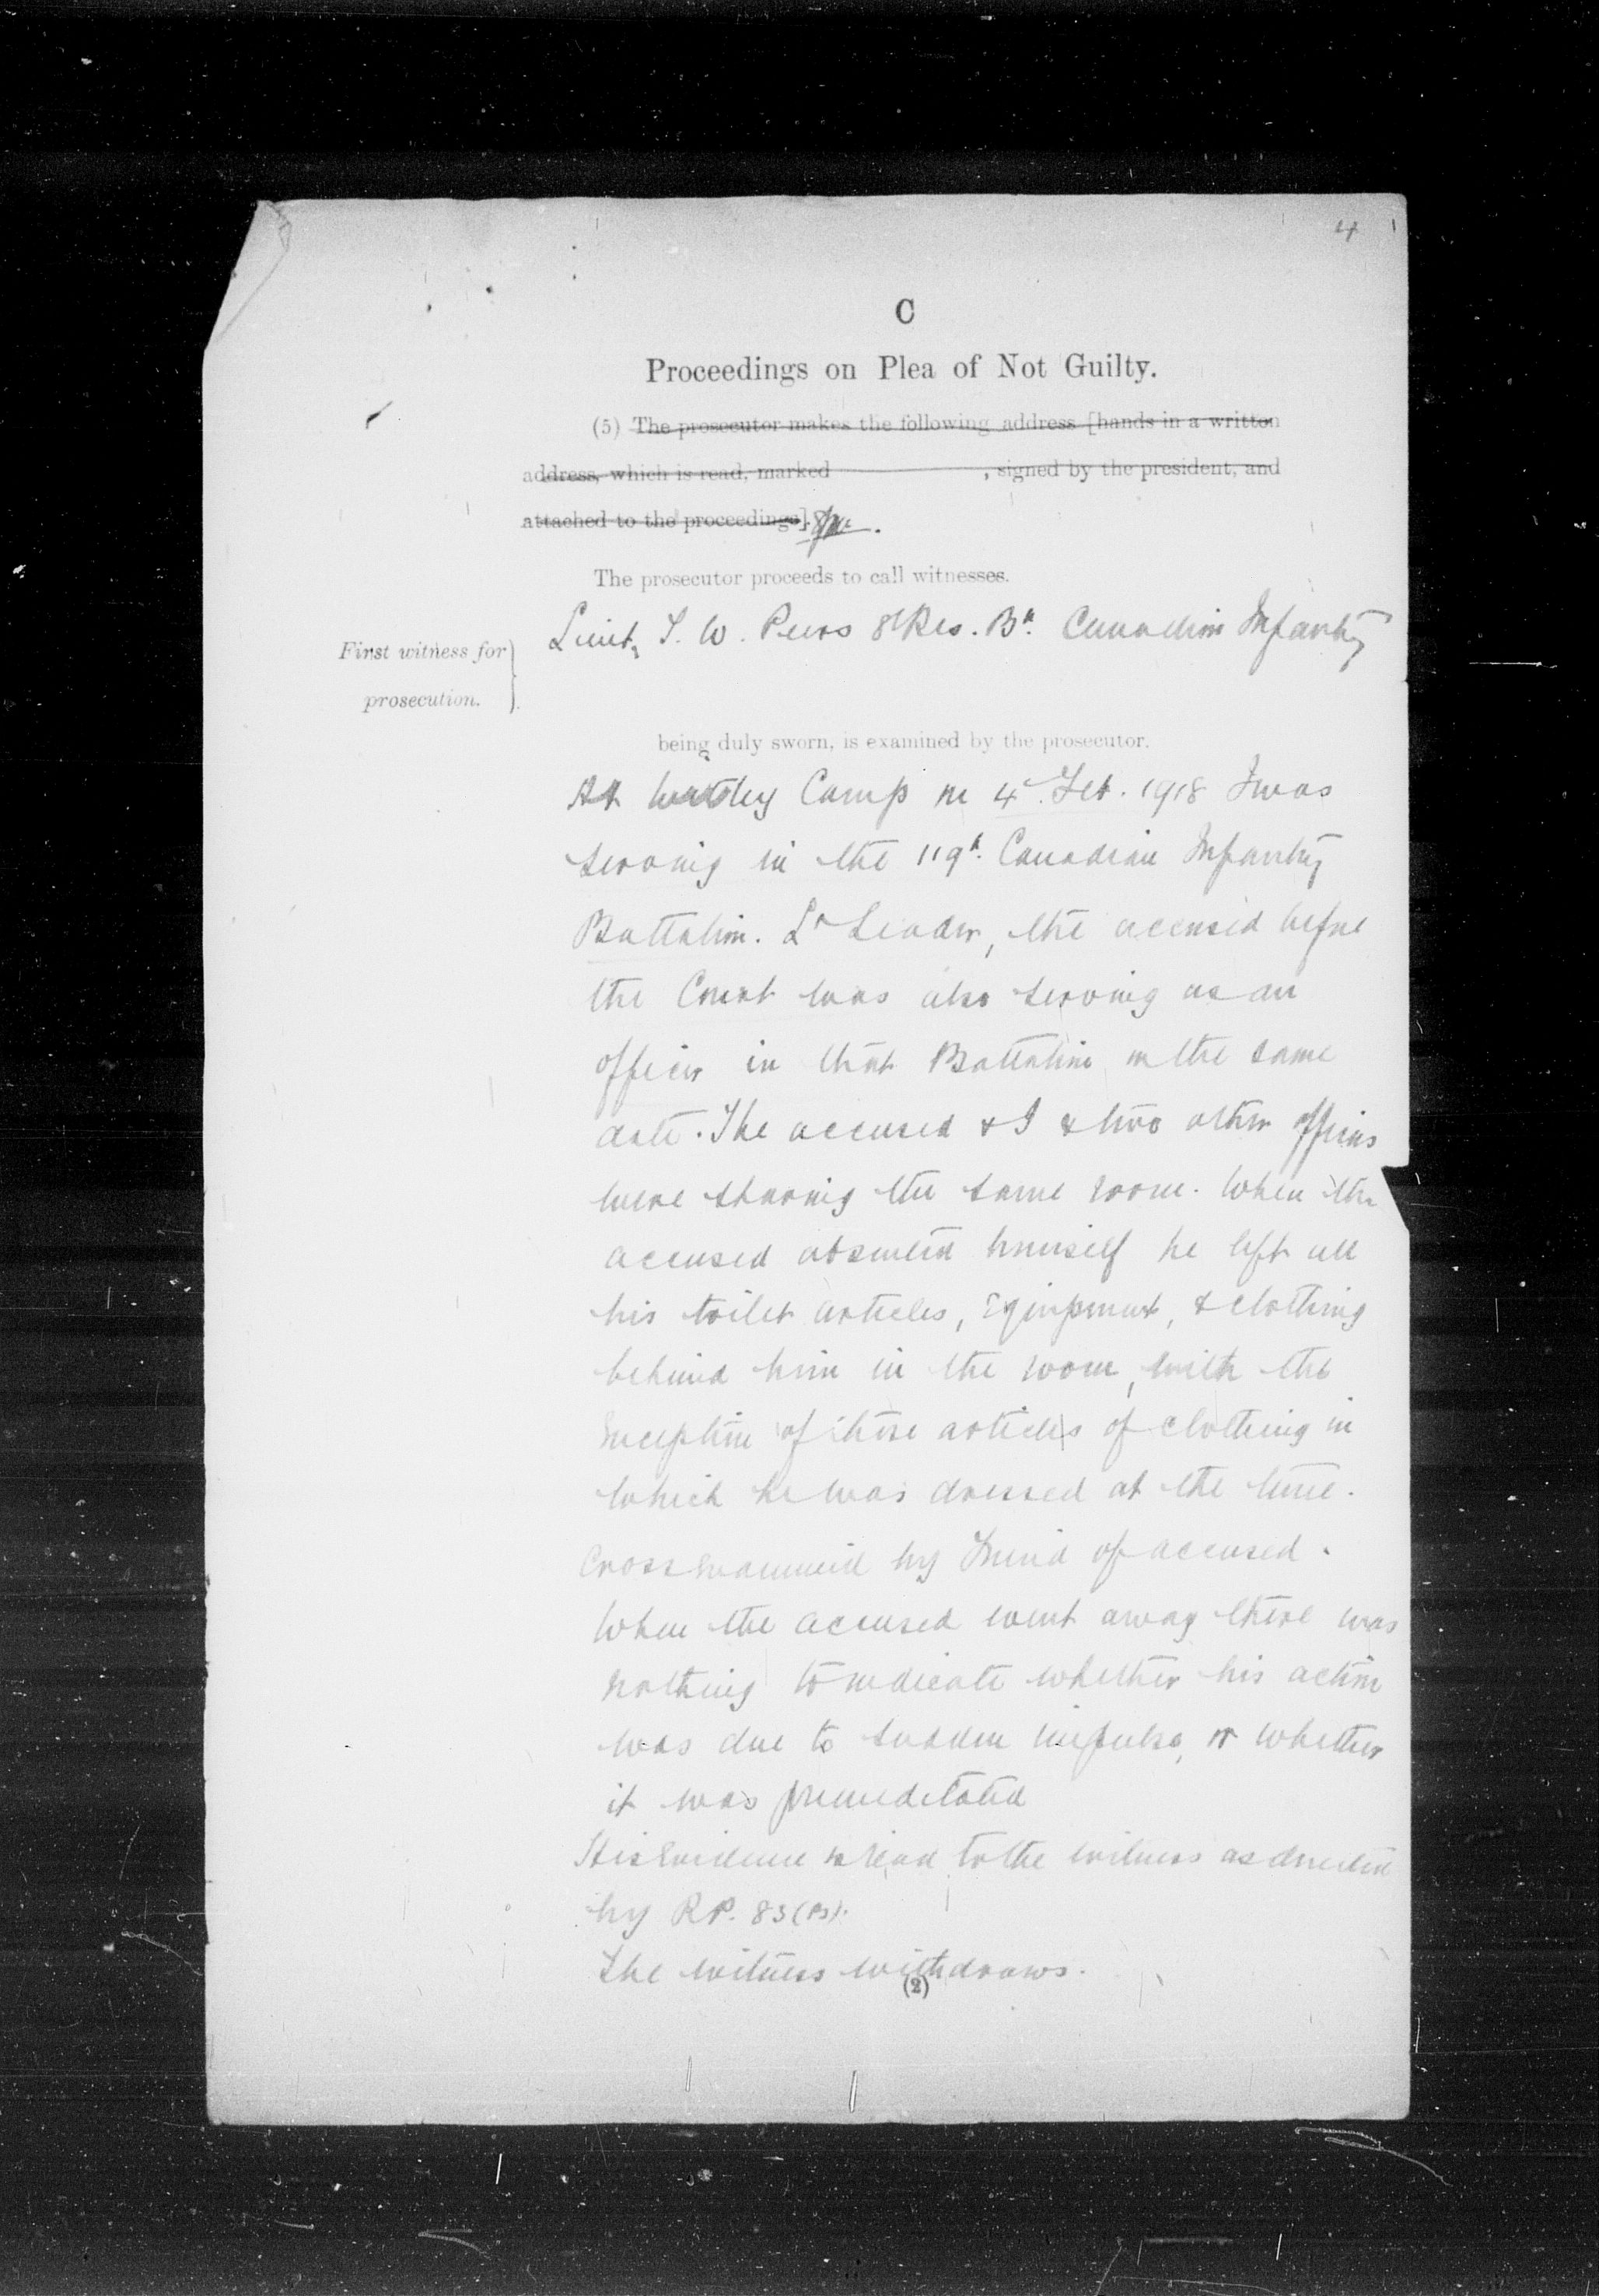 4
C
Proceedings on Plea of Not Guilty.
(5) The prosecutor makes the following address [hands in a written
address, which is read, marked , signed by the president, and
attached to the proceedings].
The prosecutor proceeds to call witnesses.
Lieut. W. Peers 8th Res. Bn. Canadian Infantry
First witness for
prosecution.
being duly sworn, is examined by the prosecutor.
At Witley Camp on 4th Feb. 1918 I was
serving in the 119th Canadian Infantry
Battalion. Lt Leader, the accused before
the Court was also serving as an
officer in that Battalion on the same
date. The accused & I & two other officers
were sharing the same room. When the
accused absented himself he left all
his toilet articles, Equipment, & clothing
behind him in the room, with the
Exception of those articles of clothing in
which he was dressed at the time.
Cross Examined by Friend of accused.
When the accused went away there was
nothing to indicate whether his action
was due to sudden impulse, or whether
it was premeditated
His Evidence is read to the witness as directed
by RP. 83 (B).
The witness withdraws.
(2)